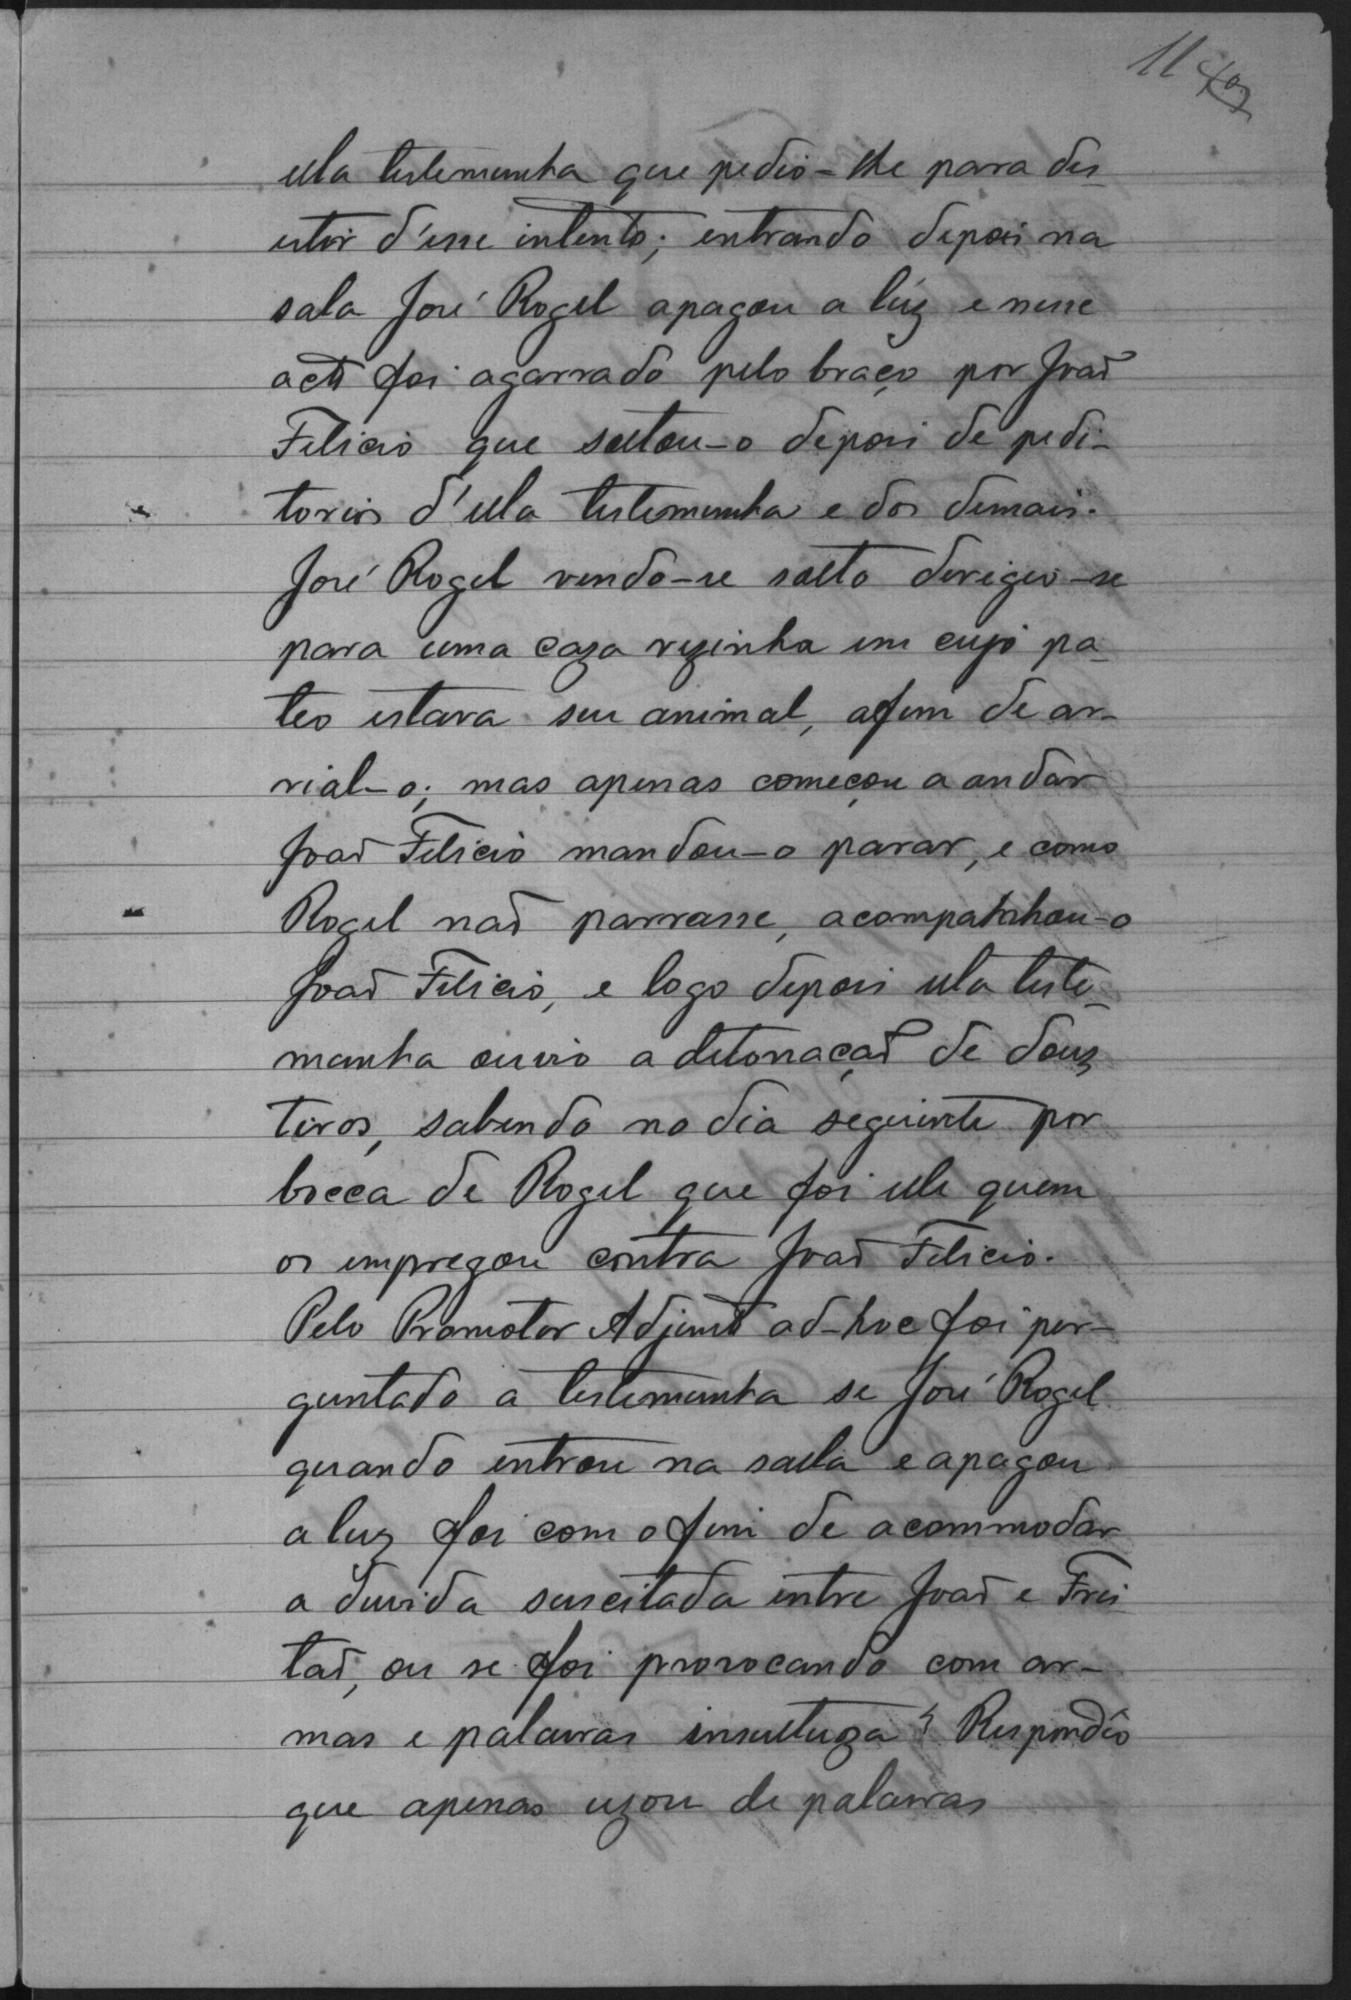 11
ella testemunha que pedio-lhe para des
istir d'esse intento; entrando depois na
sala José Rogel apagou a lúz e nesse
acto foi agarrado pelo braço por João
Felicio que soltou-o depois de pedi-
torios d'ella testemunha e dos demais.
José Rogel vendo-se solto derigio-se
para uma caza vezinha em cujo pa-
teo estava seu animal, afim de ar-
rial-o; mas apenas começou a andar
João Felicio mandou-o parar, e como
Rogel não parrasse, acompahnhou-o
João Felicio, e logo depois ella teste-
munha ouvio a detonação de douz
tiros, sabendo no dia seguinte por
bocca de Rogel que foi elle quem
os empregou contra João Felicio.
Pelo Promotor Adjunto ad-hoc foi per-
guntado a testemunha se José Rogel
quando entrou na salla e apagou
a luz foi com o fim de acommodar
a duvida suscitada entre João e Frei
tas, ou se foi provocando com ar-
mas e palavras insultuza? Respondêo
que apenas uzou de palavras